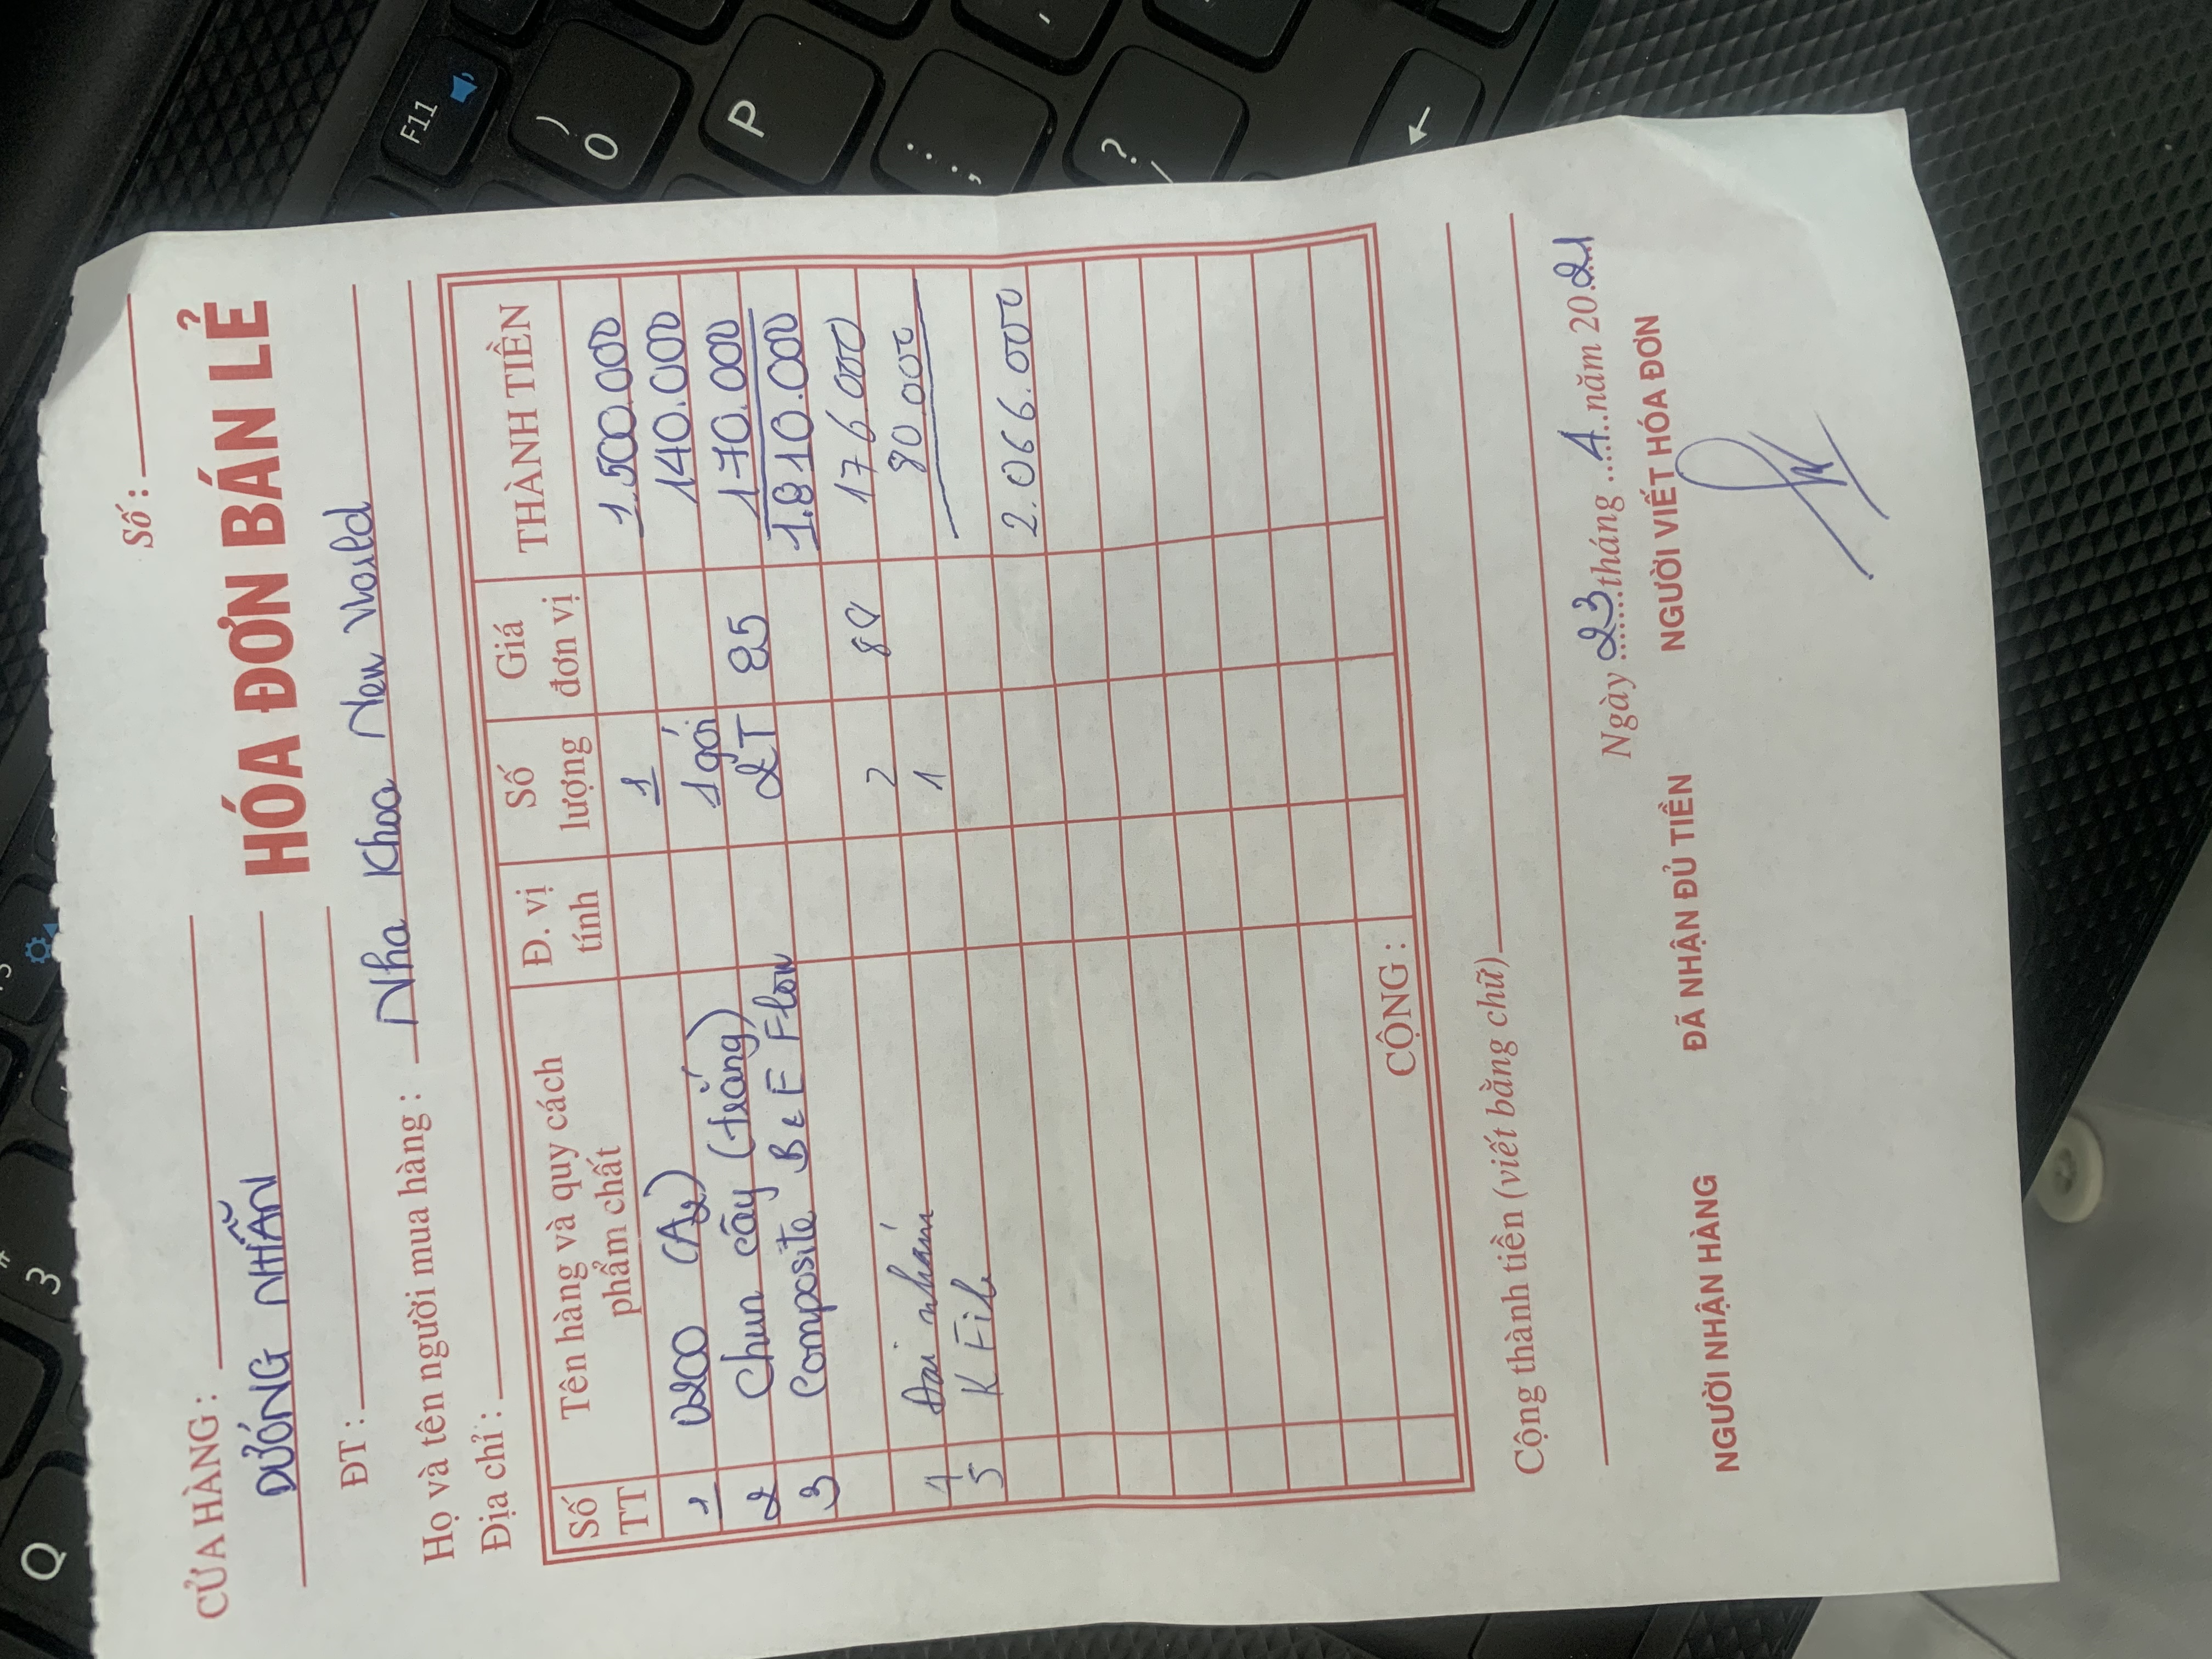 Số :
CỬA HÀNG :
DƯỠNG NHẪN
HÓA ĐƠN BÁN LẺ
ĐT :
Họ và tên người mua hàng : Nha Khoa New World
Địa chỉ :
Số TT Tên hàng và quy cách phẩm chất Đ. vị tính Số lượng Giá đơn vị THÀNH TIỀN
1 (A2) 1 1.500.000
2 Chun cây (trắng) 1 gói 140.000
3 Composite B & E Flow 2T 85 170.000
1.810.000
4 Đai nhám 2 88 176.000
5 K File 1 80.000
2.066.000
CỘNG :
Cộng thành tiền (viết bằng chữ)
Ngày 23 tháng 4 năm 2021
NGƯỜI NHẬN HÀNG ĐÃ NHẬN ĐỦ TIỀN NGƯỜI VIẾT HÓA ĐƠN
Q
3
F11
)
0
P
:
;
?
/